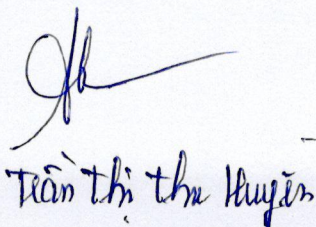 Trần Thị Thu Huyền